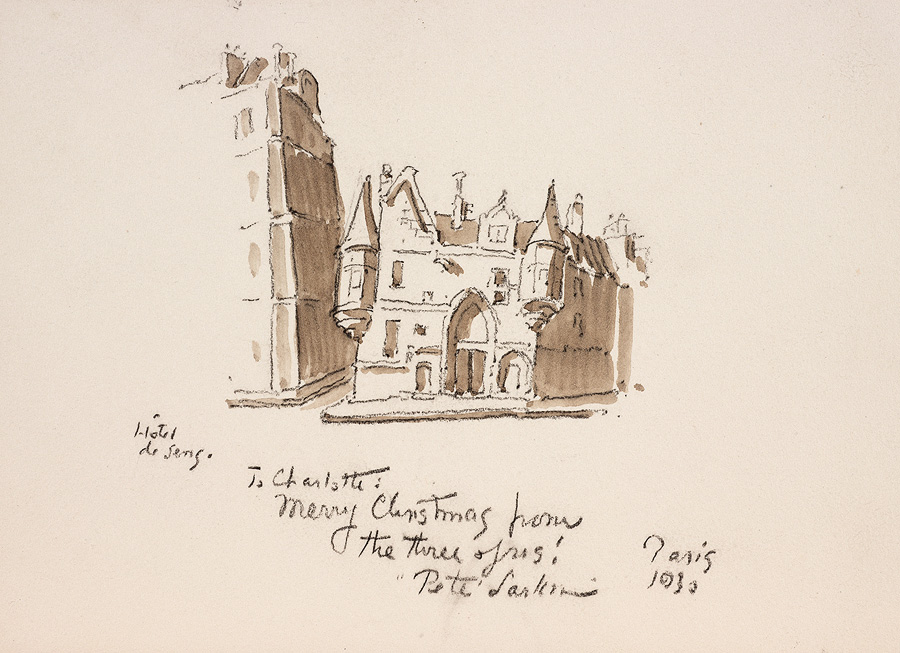 Hôtel
de Sens.
To Charlotte:
Merry Christmas from
the three of us!
"Pete" Larkin
Paris
1930